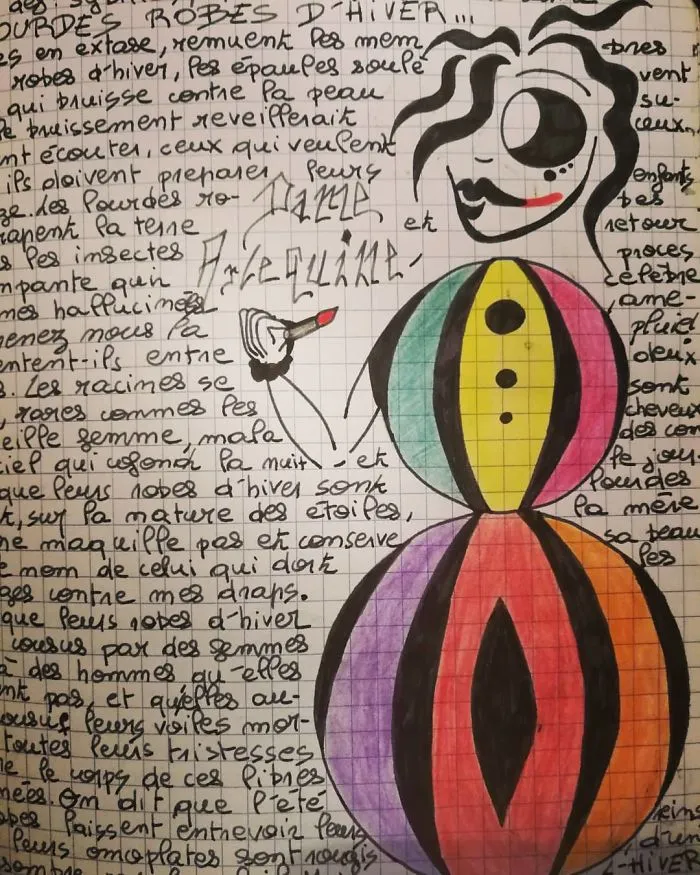 OURDES ROBES D'HIVER...
es en extase, remuent les mem bres
robes d'hiver, les épaules soulè vent
qui bruisse contre la peau su-
e bruissement reveillerait ceux
nt écouter, ceux qui veulent
ils doivent preparer leurs enfants
ge. les lourdes ro- bes
rapent la terre et retour
s les insectes proces
mpante qui célebre
mes hallucinées ame-
menez nous la pluie
entent-ils entre deux
s. Les racines se sont
, rares commes les cheveux
eille femme, mala des com
ciel qui cofond la nuit et le jour.
que leurs robes d'hiver sont lourdes
t, sur la mature des étoiles, la mère
ne maquille pas et conserve sa beau
e nom de celui qui dort les
ges contre mes draps.
que leurs robes d'hiver
cousus par des femmes
à des hommes qu'elles
nt pas, et qu'elles au-
ousus leurs voiles mor-
toutes leurs tristesses
ne le corps de ces libres
nées. On dit que l'été
obes laissent entrevoir leurs reins
leurs omoplates sont rougis d'un
L-HIVER
Dame
Arlequine